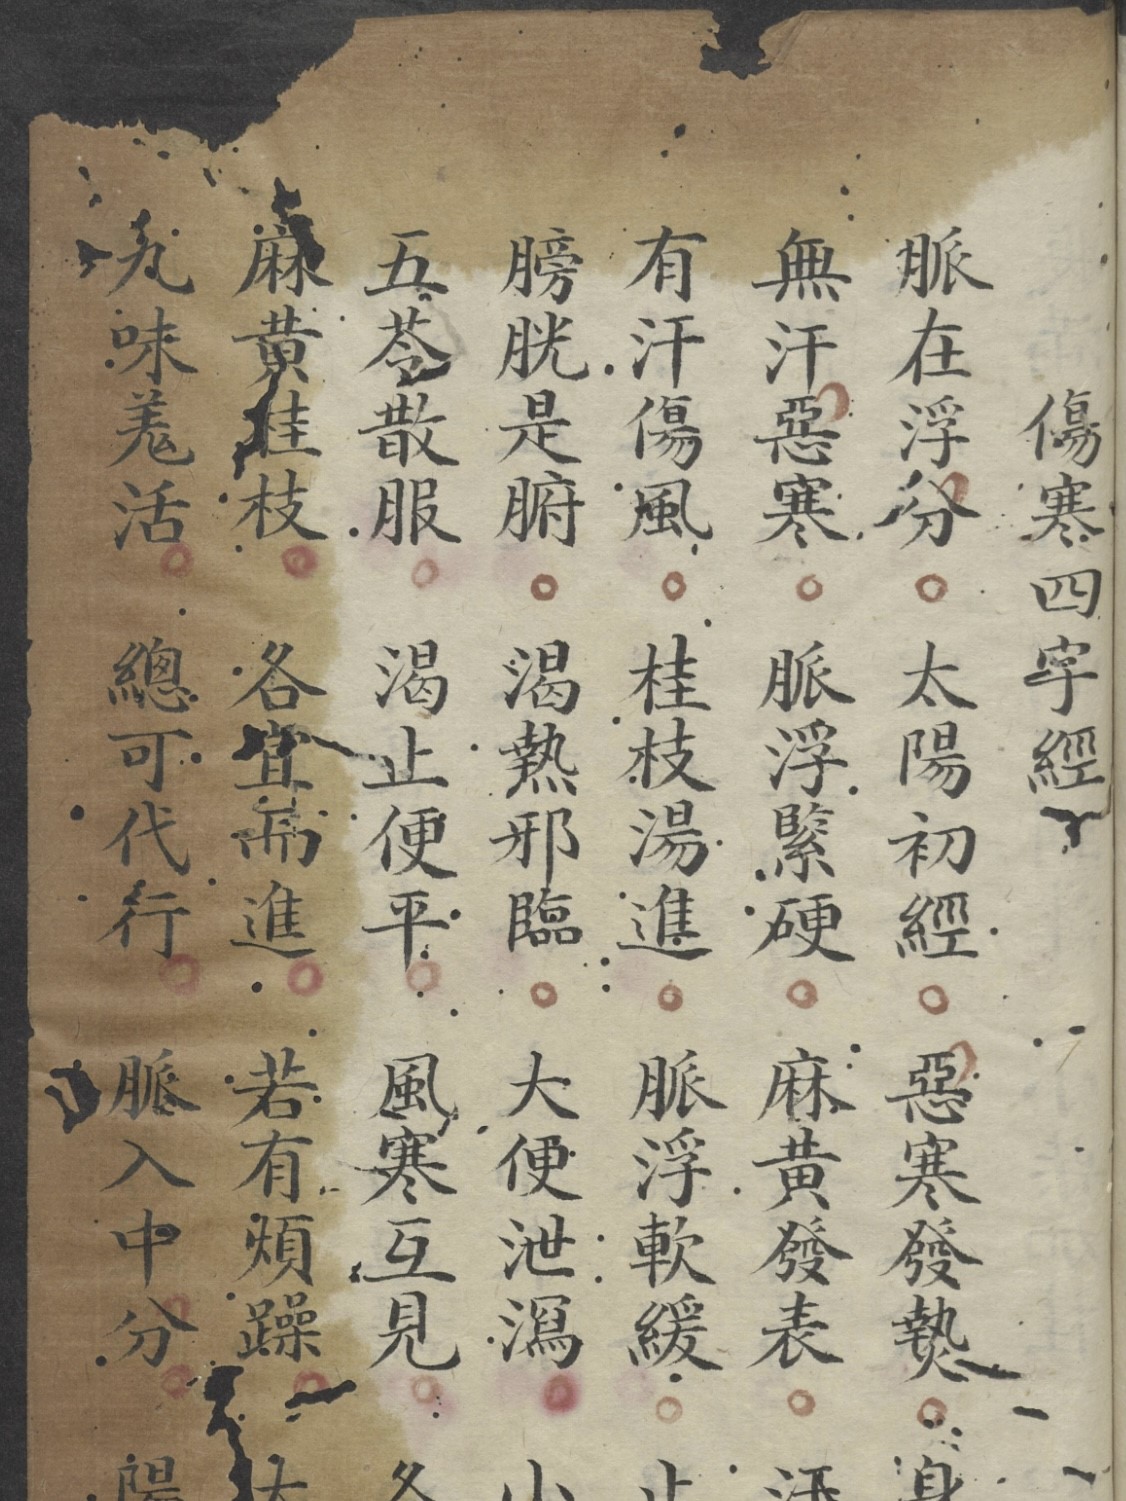 傷寒四字經
脈在浮分 太陽初經 惡寒發熱
無汗惡寒 脈浮緊硬 麻黄發表
有汗傷風 桂枝湯進 脈浮軟緩
膀胱是腑 渴熱邪臨 大便泄瀉
五苓散服 渴止便平 風寒互見
麻黄桂枝 各宜 進 若有煩躁
九味羗活 總可代行 脈入中分